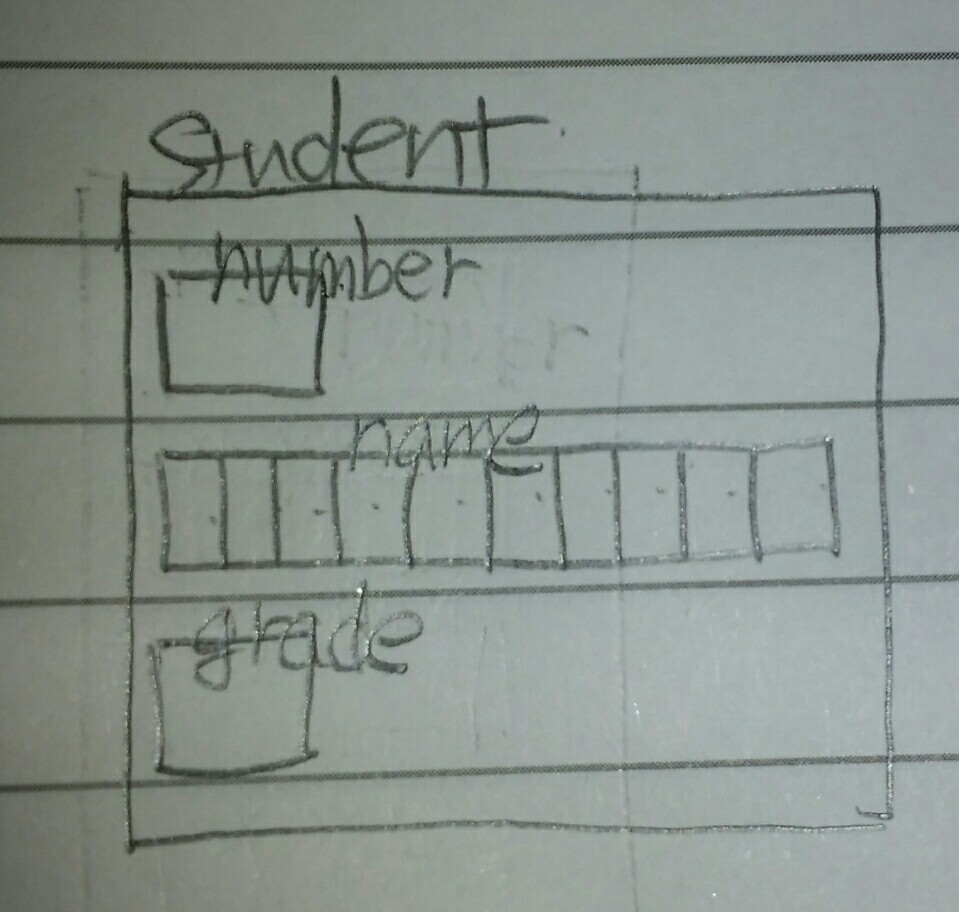 student
number
name
grade